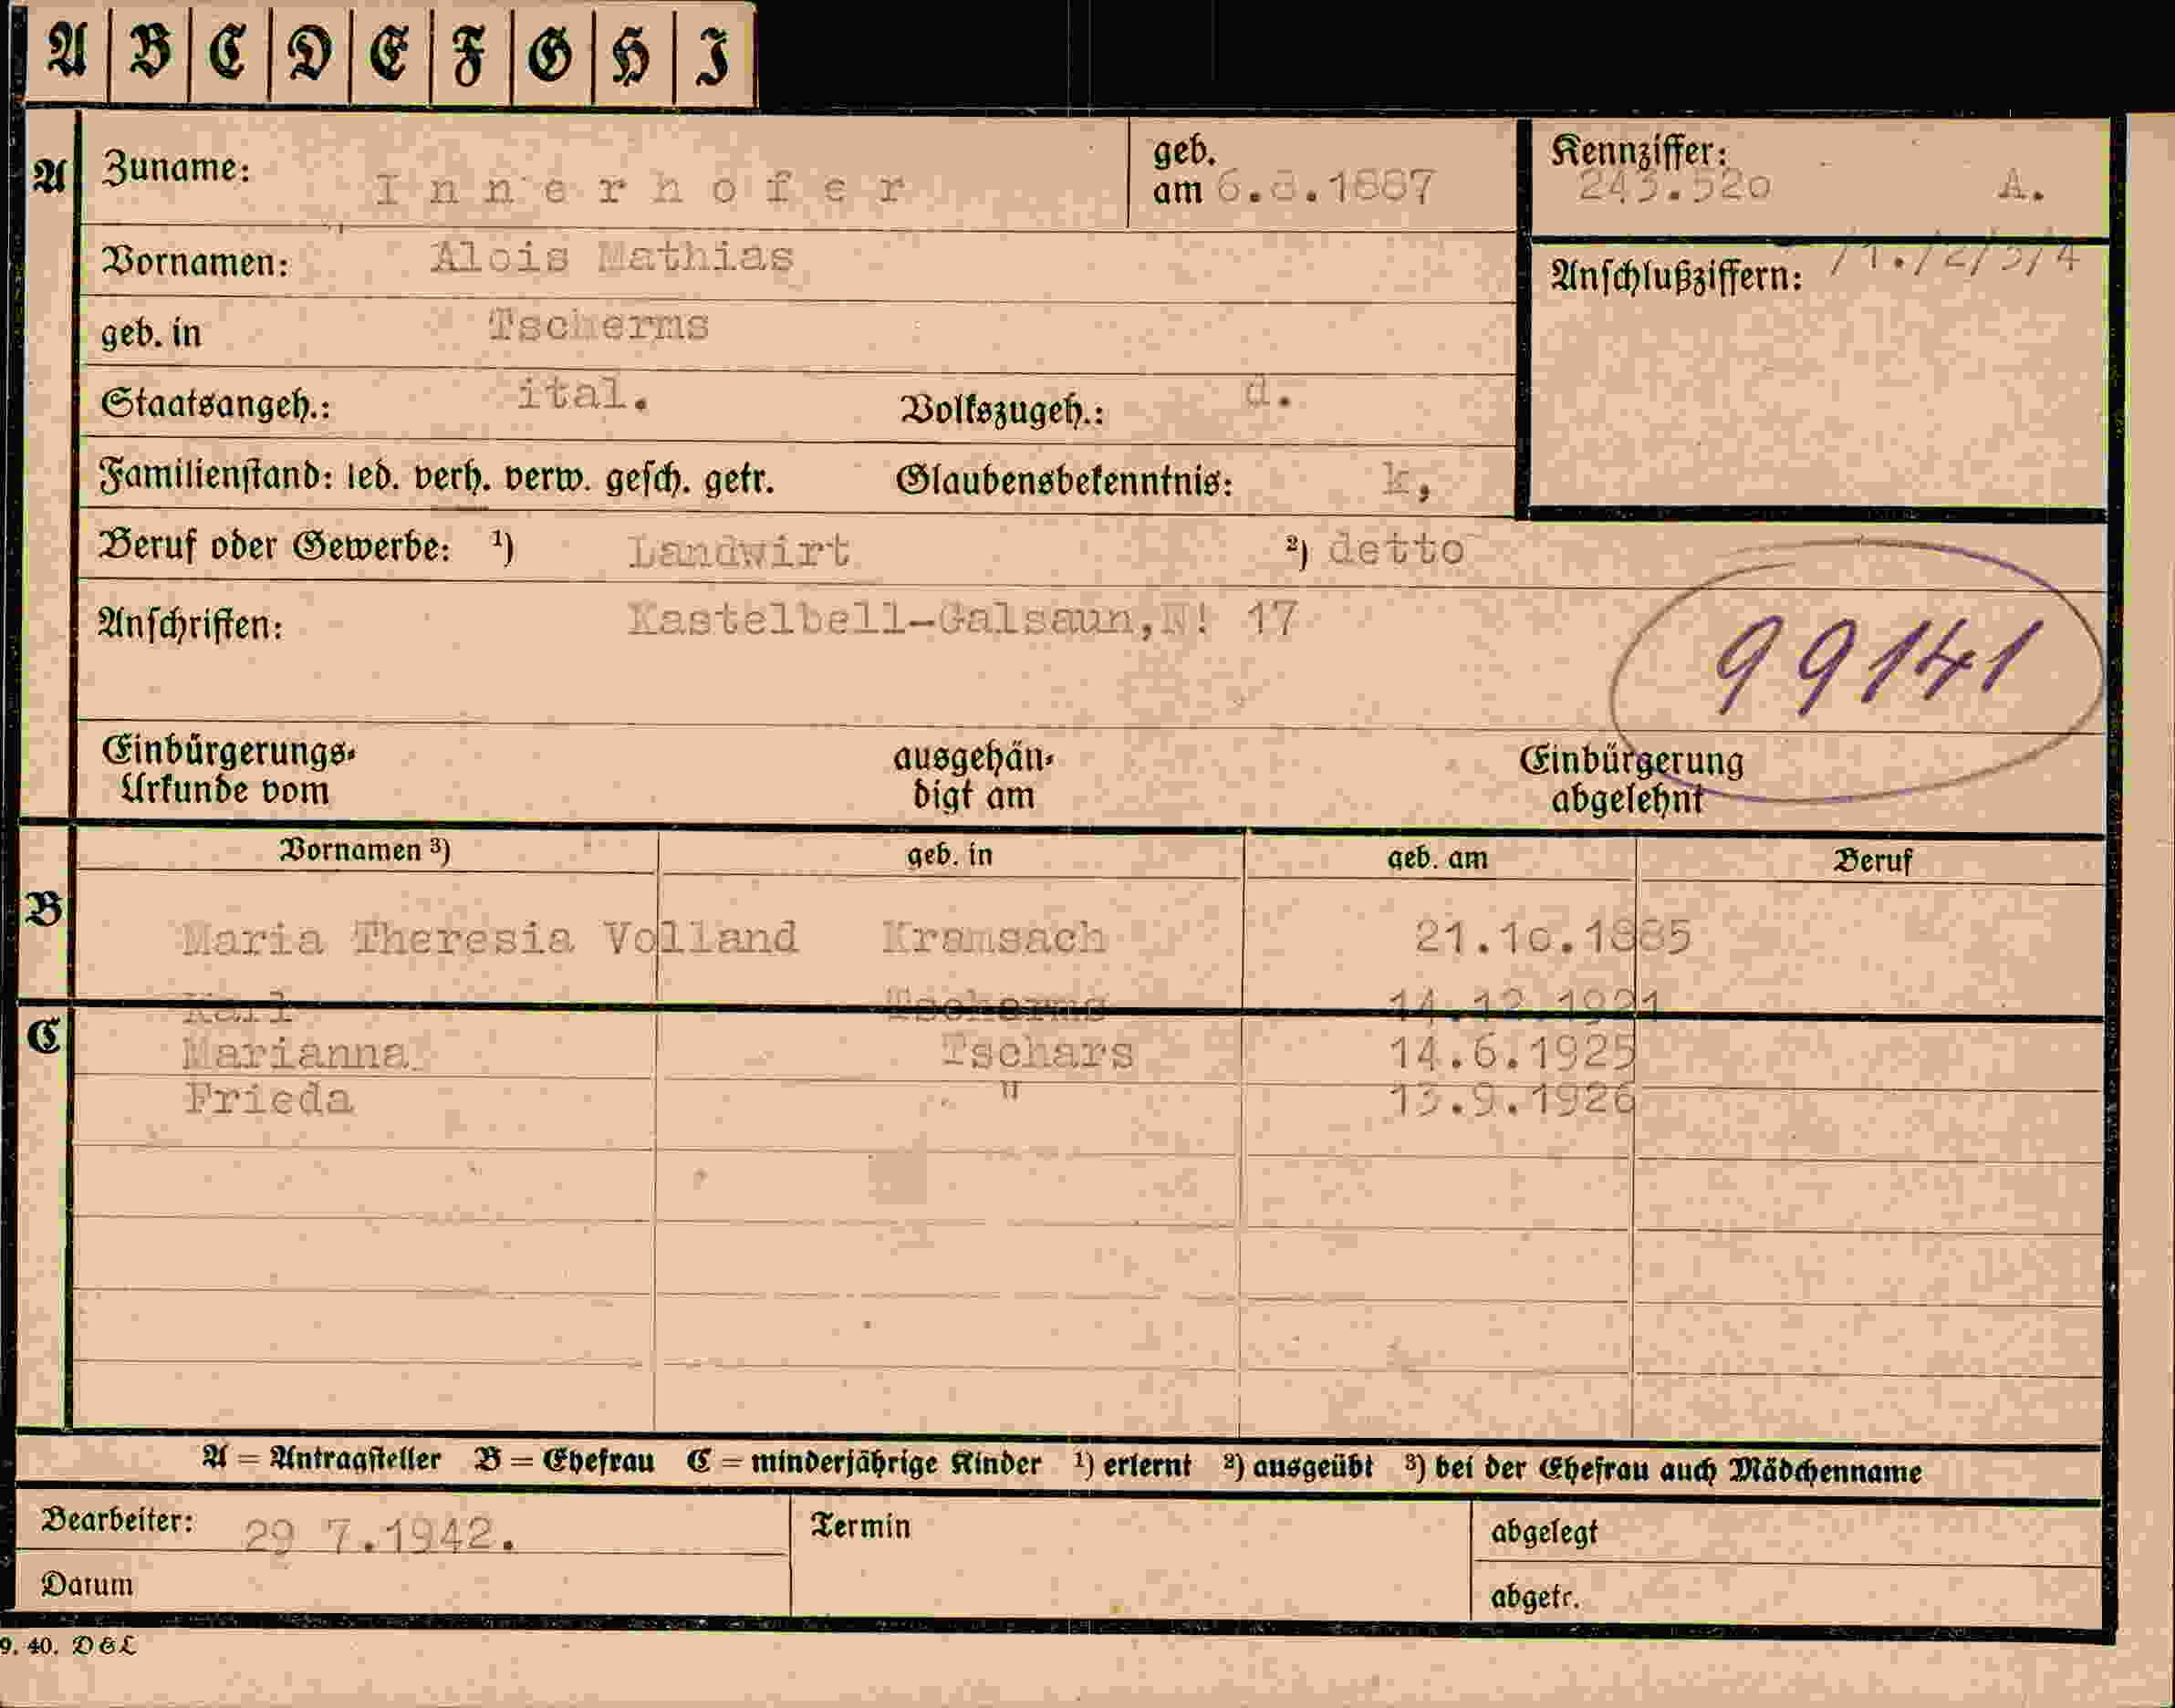 A B C D E F G H I
A Zuname: Innerhofer geb. am 6.8.1887 Kennziffer: 243.520 A.
Vornamen: Alois Mathias Anschlußziffern: /1./2/3/4
geb. in Tscherms
Staatsangeh.: ital. Volkszugeh.: d.
Familienstand: led. verh. verw. gesch. getr. Glaubensbekenntnis: k,
Beruf oder Gewerbe: ¹) Landwirt ²) detto
Anschriften: Kastelbell-Galsaun,N! 17
99141
Einbürgerungs-Urkunde vom ausgehändigt am Einbürgerung abgelehnt
Vornamen ³) geb. in geb. am Beruf
B Maria Theresia Volland Kramsach 21.10.1885
Karl Tscherms 14.12.1921
C Marianna Tschars 14.6.1925
Frieda " 13.9.1926
A = Antragsteller B = Ehefrau C = minderjährige Kinder ¹) erlernt ²) ausgeübt ³) bei der Ehefrau auch Mädchenname
Bearbeiter: 29 7.1942. Termin abgelegt
Datum abgetr.
9. 40. DGL